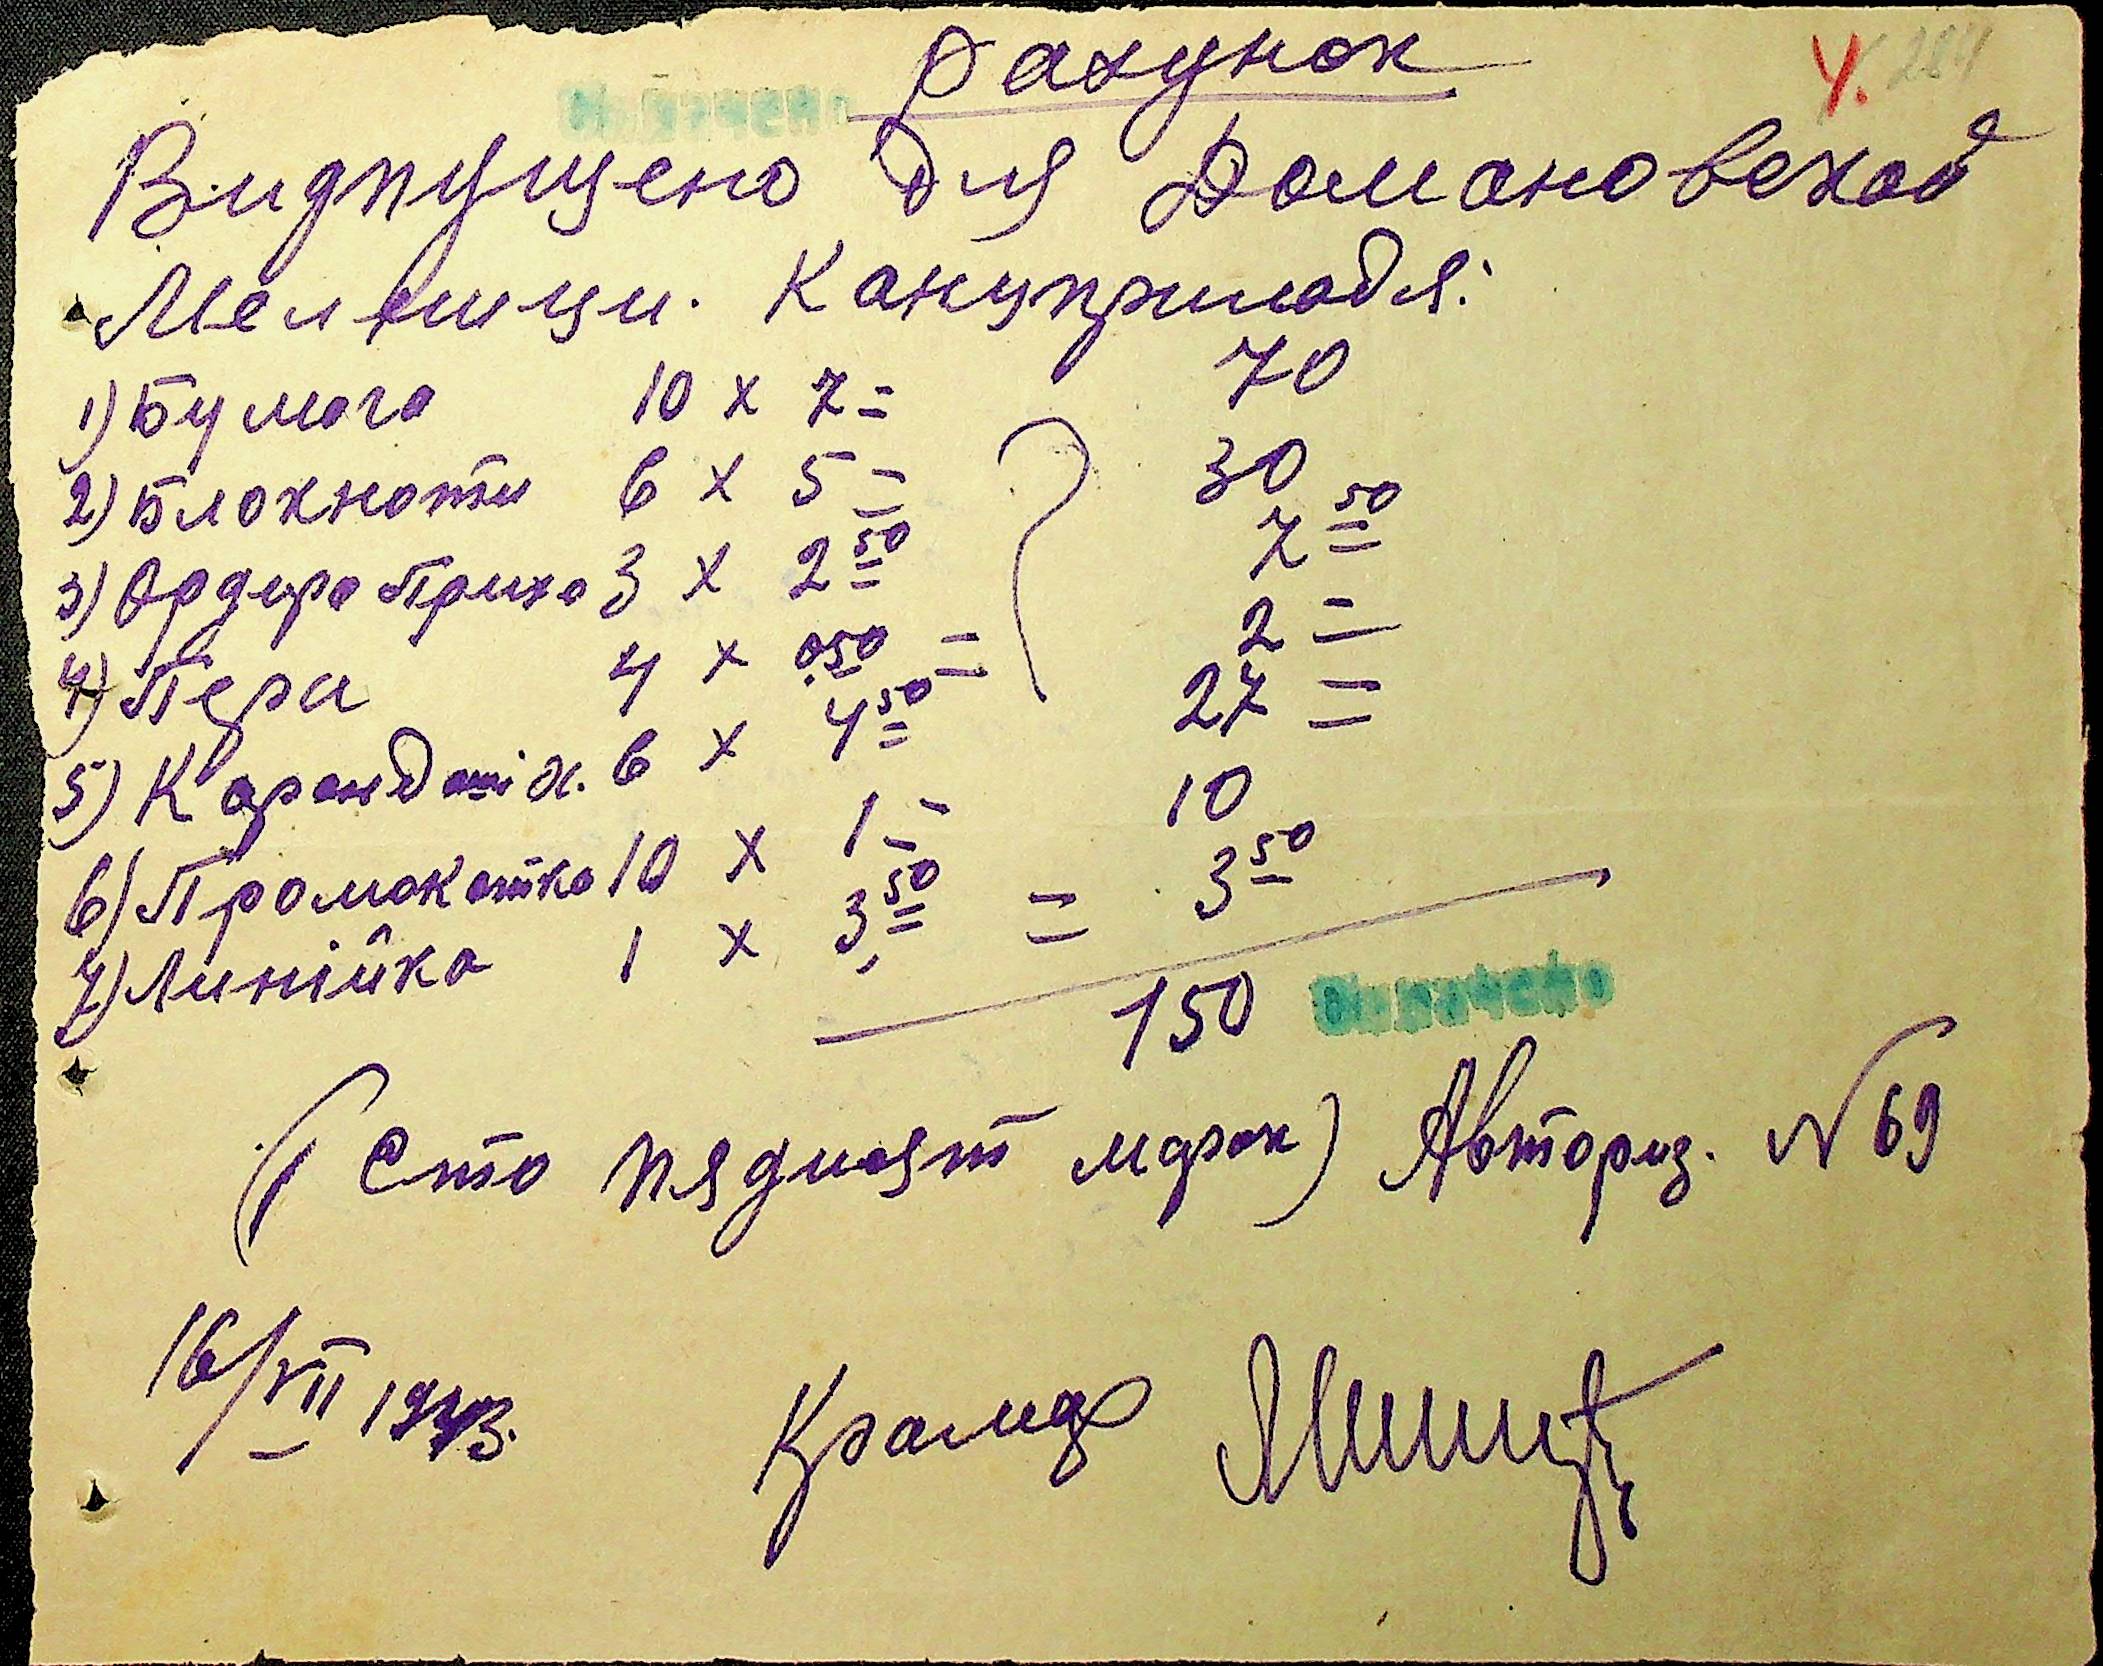 Рахунок
Ч. 284
Видпущено для Домановской
Мельници. Канцприладя:
1) Бумага 10 x 7 = 70
2) Блокноти 6 x 5 = 30
3) Ордера Прихо 3 x 2 50 7 50
4) Пера 4 x 0 50 = 2 =
5) Карандашій. 6 x 4 50 27 =
6) Промокатка 10 x 1 = 10
7) Линійка 1 x 3,50 = 3 50
150 Виплачено
(Сто пядисят марок) Авториз. № 69
16/VII 1943. Крамар